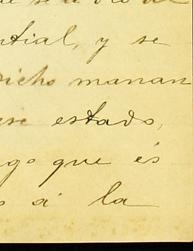 ntial, y se
dicho manan
ese estado,
go que és
s á la